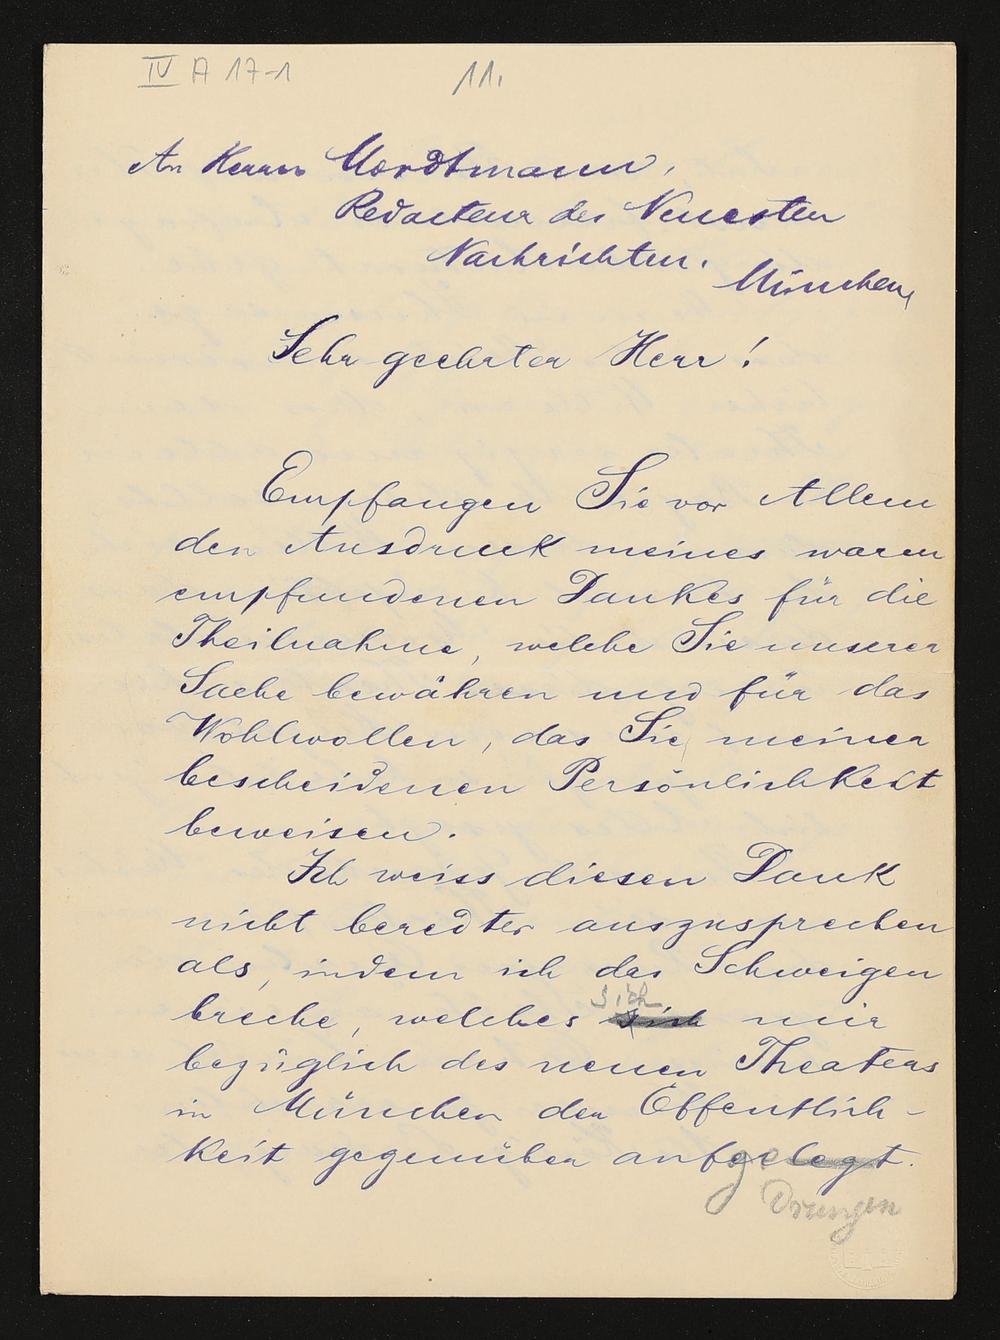 IV A 17-1
11.
An Herrn Mordtmann,
Redacteur der Neuesten
Nachrichten.
München,
Sehr geehrter Herr!
Empfangen Sie vor Allem
den Ausdruck meines warm
empfundenen Dankes für die
Theilnahme, welche Sie unserer
Sache bewähren und für das
Wohlwollen, das Sie meiner
bescheidenen Persönlichkeit
beweisen.
Ich weiss diesen Dank
nicht beredter auszusprechen
als, indem ich das Schweigen
sich
breche, welches sich mir
bezüglich des neuen Theaters
in München der Öffentlich-
keit gegenüber aufgelegt.
drungen